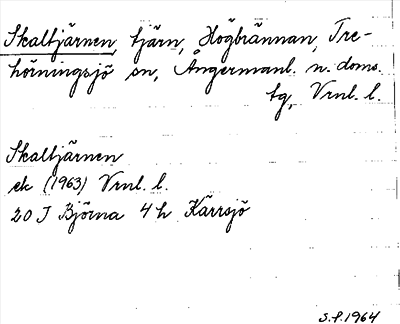 Skaltjärnen, tjärn, Högbrännan, Tre-
hörningsjö sn, Ångermanl. n. doms.
tg, Vrnl. l.
Skaltjärnen
ek (1963) Vrnl. l.
20 J Björna 4 h Kärrsjö
S.f. 1964